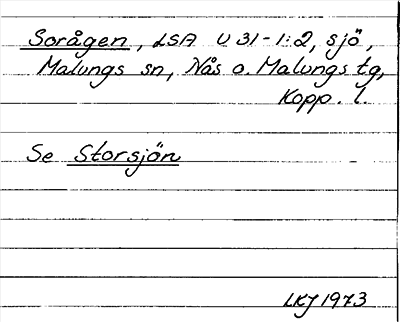 Sorågen, LSA U 31-1:2, sjö,
Malungs sn, Nås o. Malungs tg,
Kopp. l.
Se Storsjön
LKJ 1973